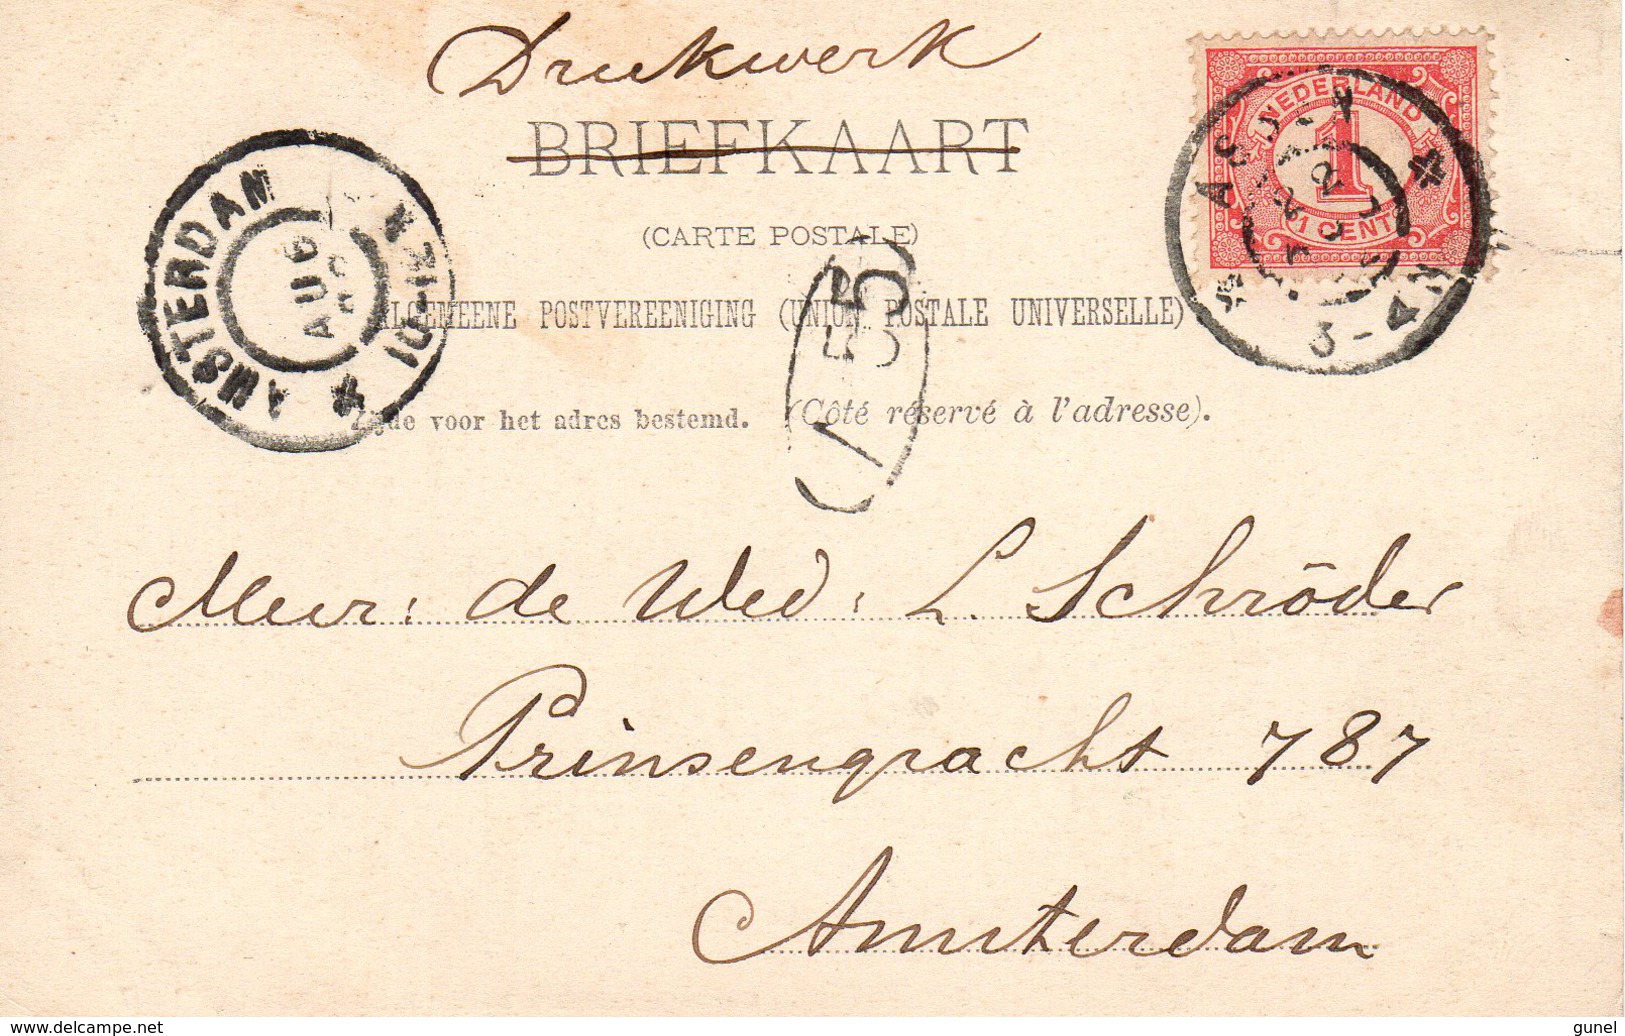 Drukwerk
BRIEFKAART
(CARTE POSTALE)
ALGEMEENE POSTVEREENIGING (UNION POSTALE UNIVERSELLE)
Zijde voor het adres bestemd. (Côté réservé à l'adresse).
NEDERLAND
1
1 CENT
AMSTERDAM
10-12
AUG
55
Mevr: de Wed: L. Schröder
Prinsengracht 787
Amsterdam
www.delcampe.net
gunel